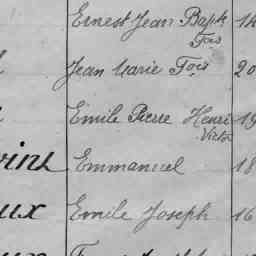 Ernest Jean Bapte 14
Fois
Jean Marie Fois 20
Emile Pierre Henri 19
Victor
Emmanuel 18
ux Emile Joseph 16